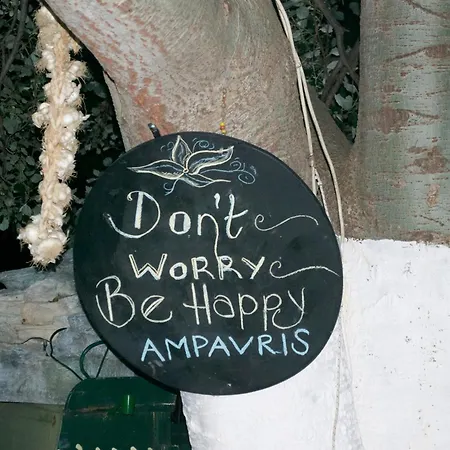 Don't
WORRY
Be Happy
AMPAVRIS